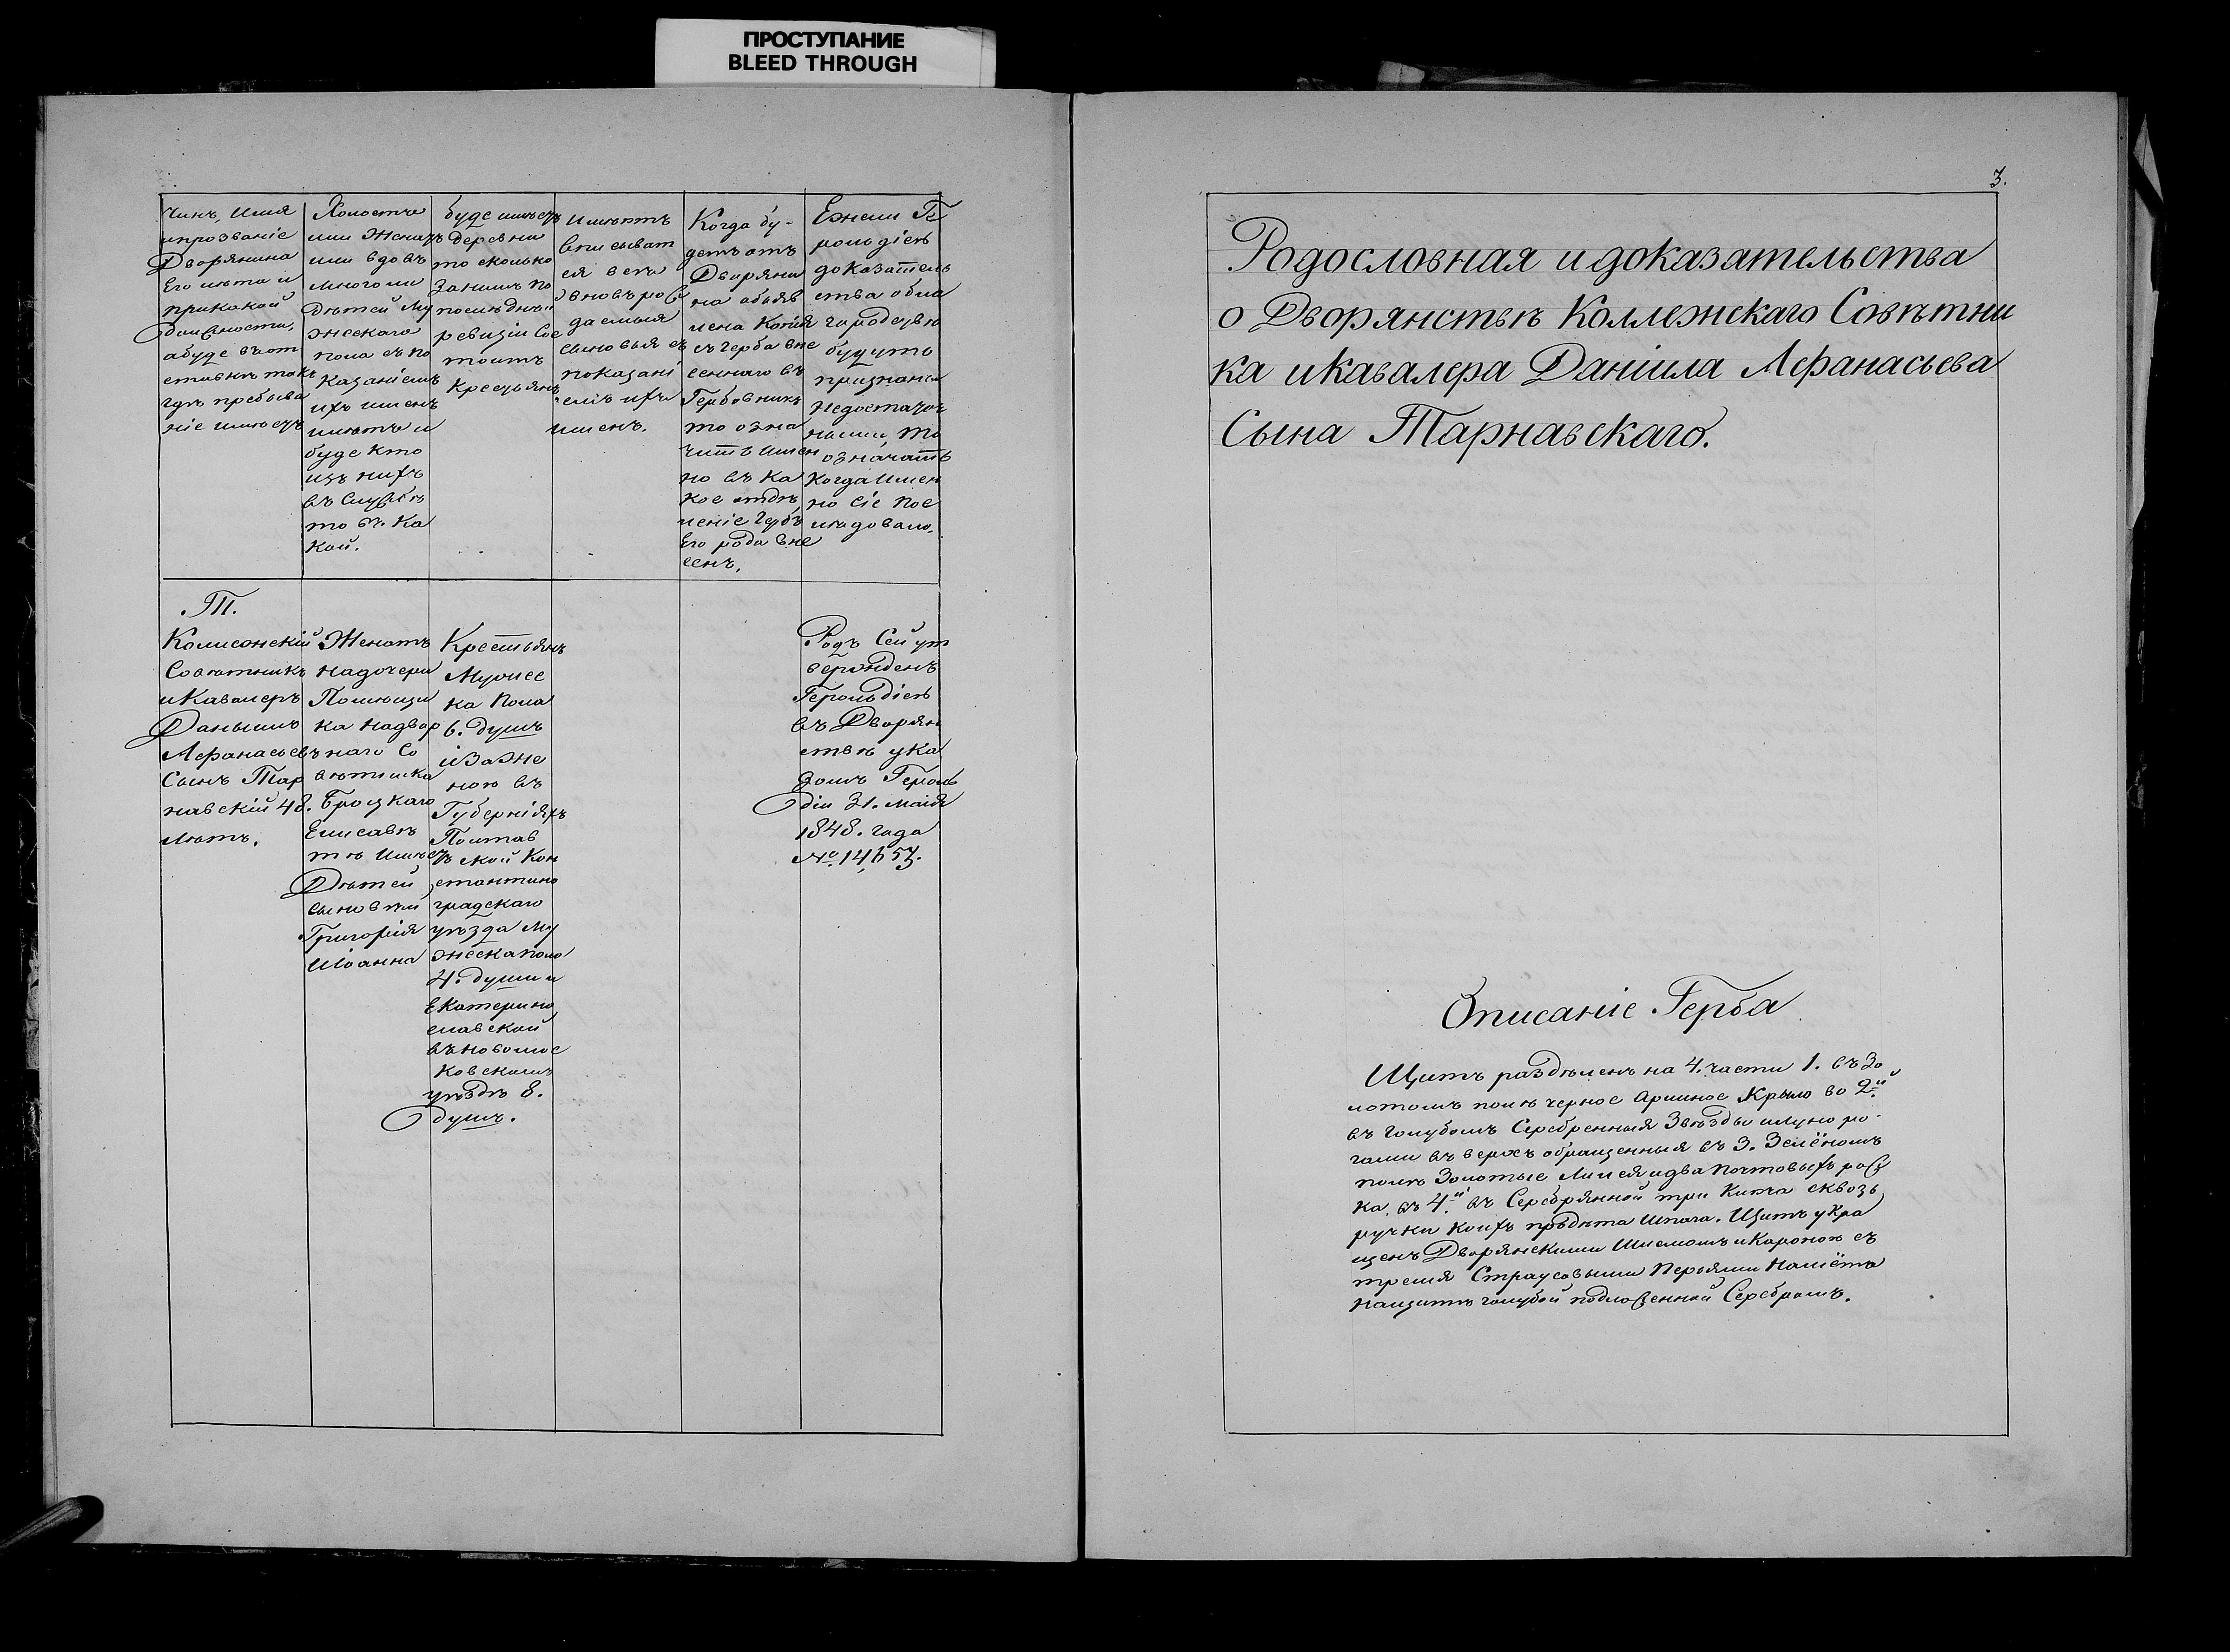 ПРОСТУПАНИЕ
BLEED THROUGH
Чинъ, Имя
ипрозваніе
Дворянина
Его лѣта и
прикакой
должности,
абуде въот
ставкѣ такъ
гдѣ пребыва
ніе имѣетъ
Холостъ
или Женатъ
или вдовъ
многоли
Дѣтей Му
жескаго
пола съ по
казаніемъ
ихъ именъ
имѣетъ и
буде кто
изъ нихъ
въ службѣ
то въ ка
кой.
буде имѣетъ
деревни
то сколько
занимъ по
послѣдней
ревизіи Сос
тоитъ
Крестьянъ
Имѣютъ
вписыват
ся всѣ
вновь рож
даемыя
сыновья съ
показані
емъ ихъ
именъ.
Когда бу-
детъ отъ
Дворяни
на объяв
лена Копія
съ герба вне
сеннаго въ
Гербовникъ
то озна
чить Имен
но въ ка
кое отдѣ
леніе Гербъ
Его рода вне
сенъ.
Ежели Ге
рольдіею
доказатель
ства обла
городствѣ
будутъ
признаны
недостаточ
ными, то
означать
когда Имен
но Сіе пос
лѣдовало.
Т.
Колежскій
Совѣтникъ
иКавалеръ
Данышлъ
Афанасьевъ
Сынъ Тар
навскій 48.
лѣтъ.
Женатъ
надочери
Помѣщи
ка Надвор
наго Со
вѣтника
Броцкаго
Елисавѣ
тѣ Имѣетъ
Дѣтей
сыновей
Григорія
иІоанна
Крестьянъ
Мужес
ка пола
6. душъ
иЗаЖе
ною въ
Губерніяхъ
Полтав
ской Кон
стантино
градскаго
уѣзда Му
жескаполо
4. души и
Екатерино
славской
въновомос
ковскимъ
уѣздѣ 8.
душъ.
Родъ Сей ут
вержденъ
Герольдіею
въ Дворян
ствѣ ука
зомъ Героль
діи 31. маія
1848. года
№. 14,657.
3.
Родословная идоказательства
о Дворянствѣ Коллежскаго Совѣтни
ка икавалера Даніила Афанасьева
Сына Тарнавскаго.
Описаніе Герба
Щитъ раздѣленъ на 4. части 1. въ Зо
лотомъ полѣ черное Арлиное Крыло во 2.й
въ голубомъ Серебренныя Звѣзды илуно ро-
гами въ верхъ обращенныя въ 3. Зелёномъ
полѣ Золотые Лилея идва почтовыхъ рож
ка, въ 4.й въ Серебрянной три Кипча сквозь
ручки коихъ продѣта Шпага. Щитъ укра
щенъ Дворянскими Шлемомъ икороною съ
тремя Страусовыми Перьями Намётъ
нащитѣ голубой подложенной Серебромъ.